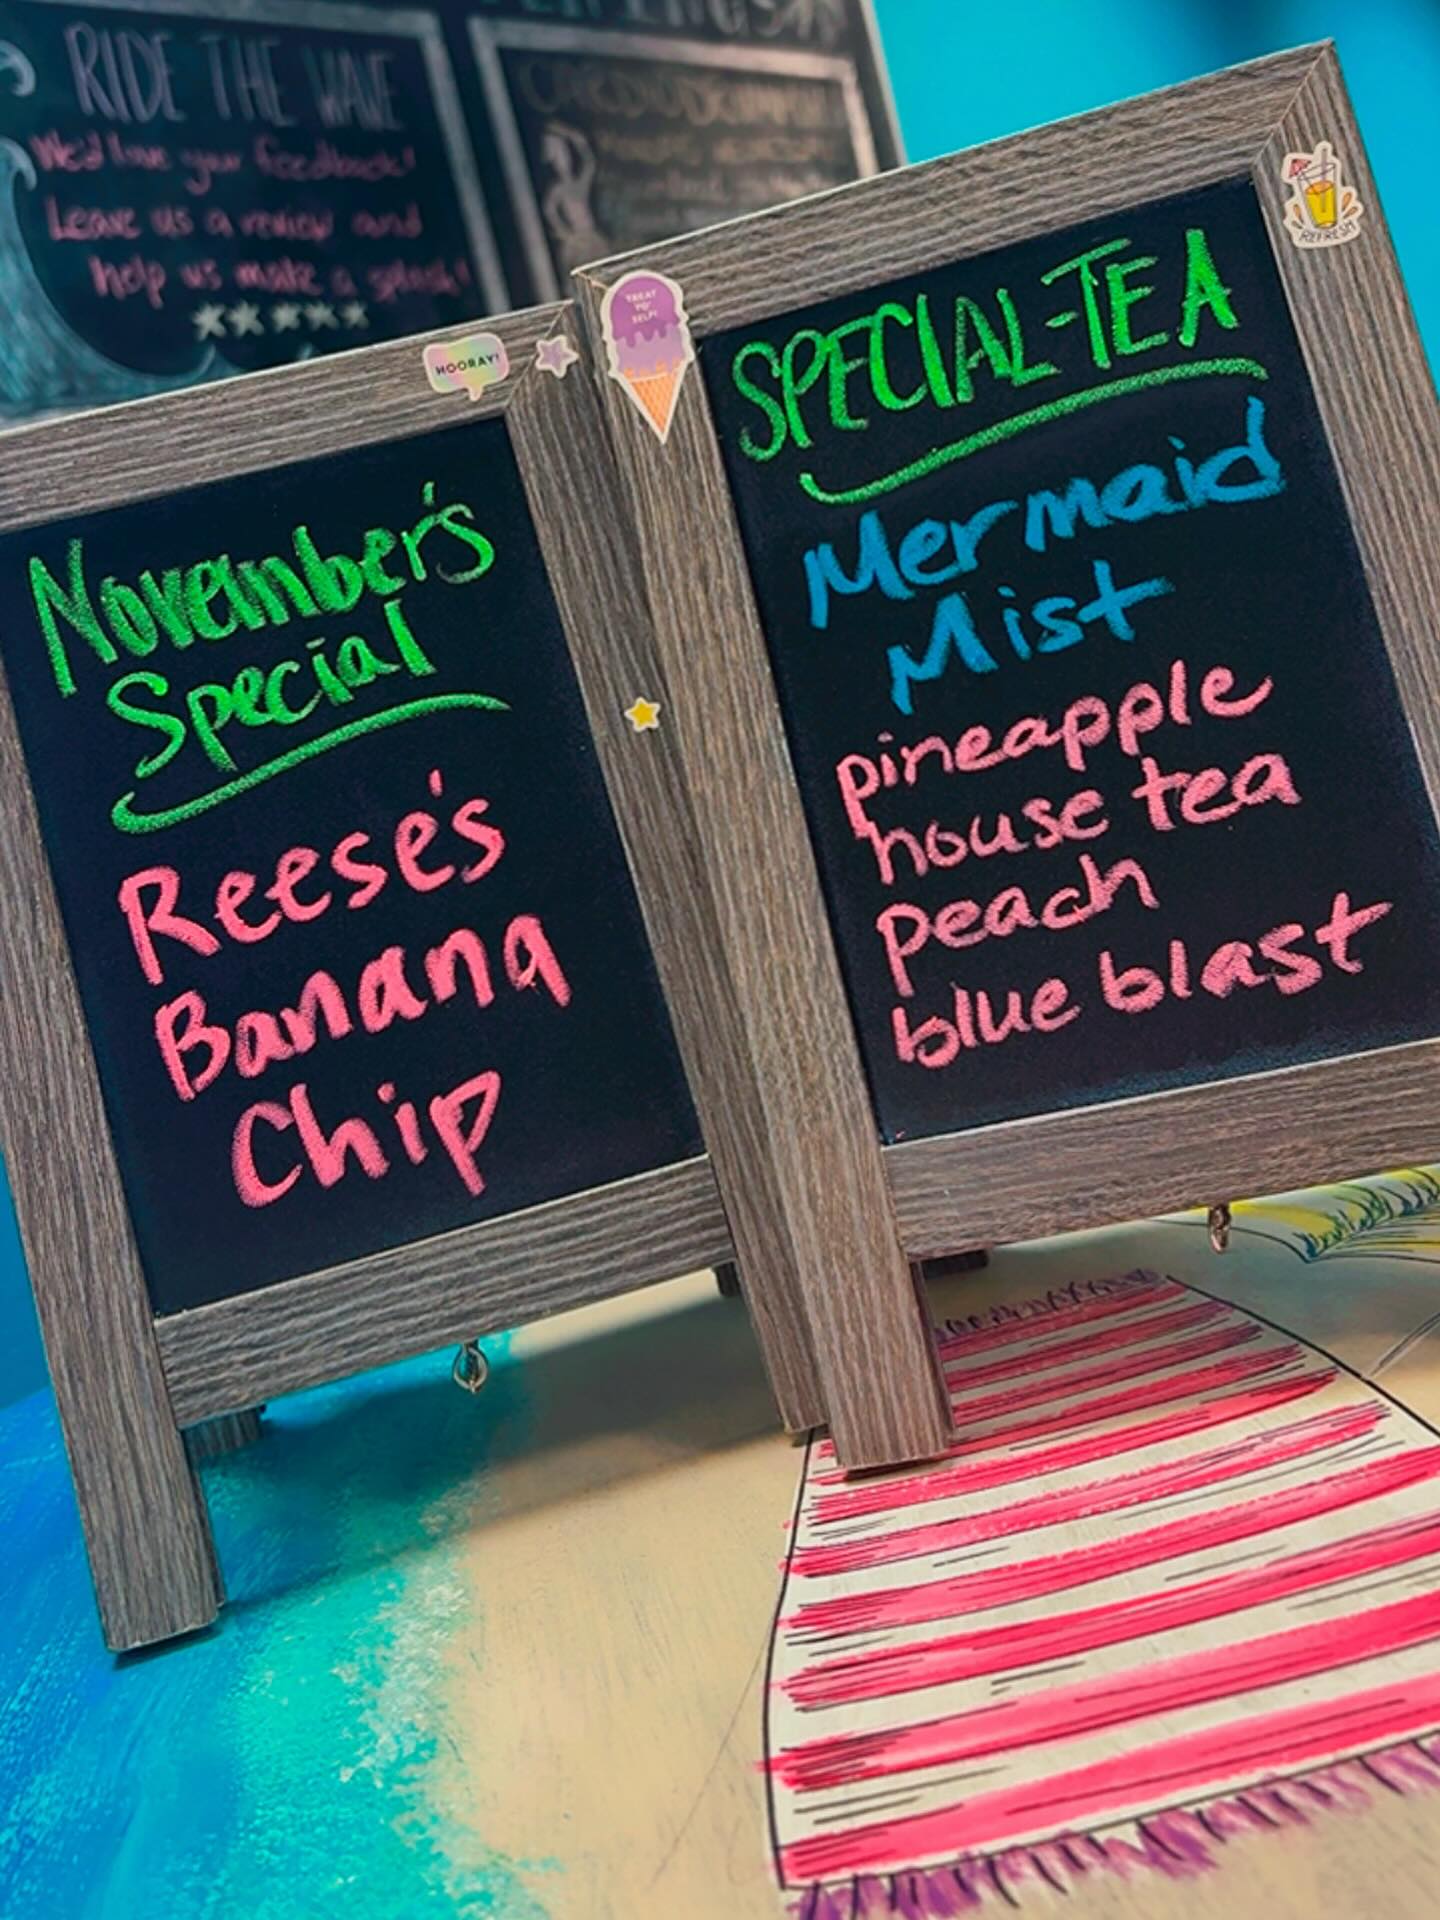 RIDE THE WAVE
We'd love your feedback!
Leave us a review and
help us make a splash!
HOORAY!
November's
Special
Reese's
Banana
Chip
TREAT
YO'
SELF!
REFRESH
SPECIAL-TEA
Mermaid
Mist
pineapple
house tea
peach
blue blast